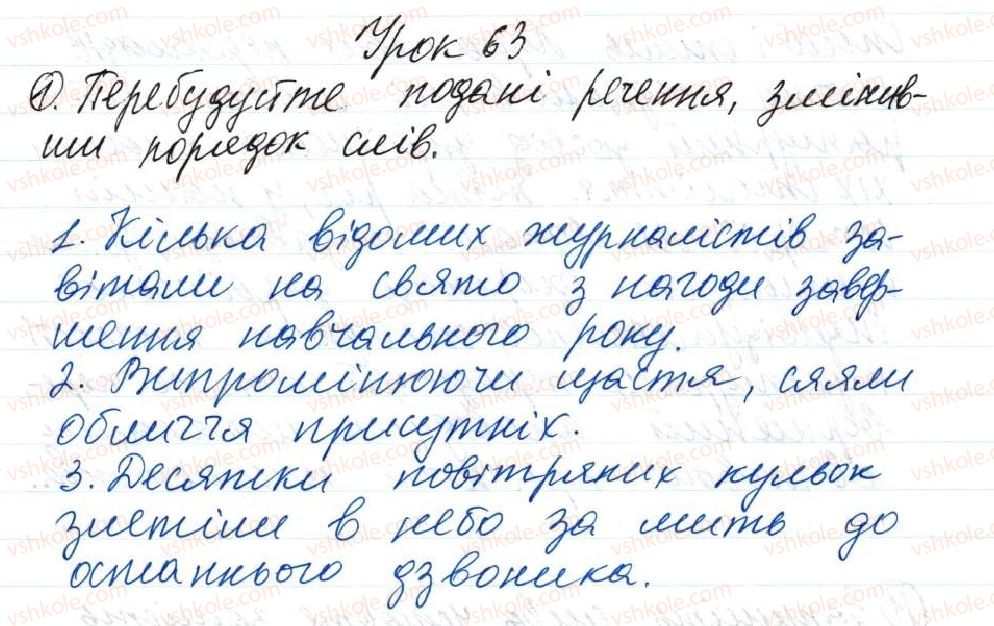 Урок 63
1. Перебудуйте подані речення, змінив-
ши порядок слів.
1. Кілька відомих журналістів за-
вітали на свято з нагоди завер-
шення навчального року.
2. Випромінюючи щастя, сяяли
обличчя присутніх.
3. Десятки повітряних кульок
злетіли в небо за мить до
останнього дзвоника.